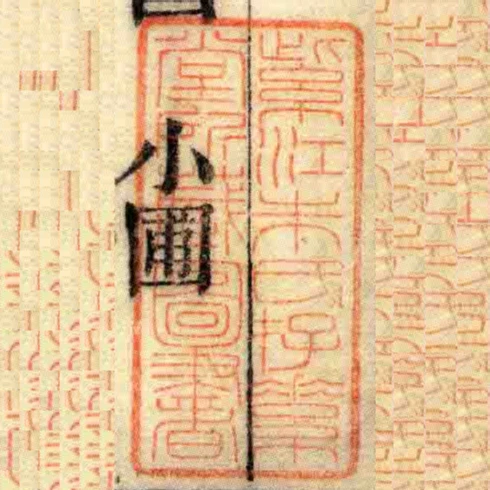 紫江朱氏存素
堂所藏圖書
小圃